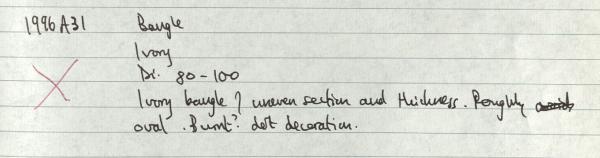 1996 A31 Bangle
Ivory
Di. 80-100
Ivory bangle of uneven section and thickness. Roughly
oval. Burnt? dot decoration.